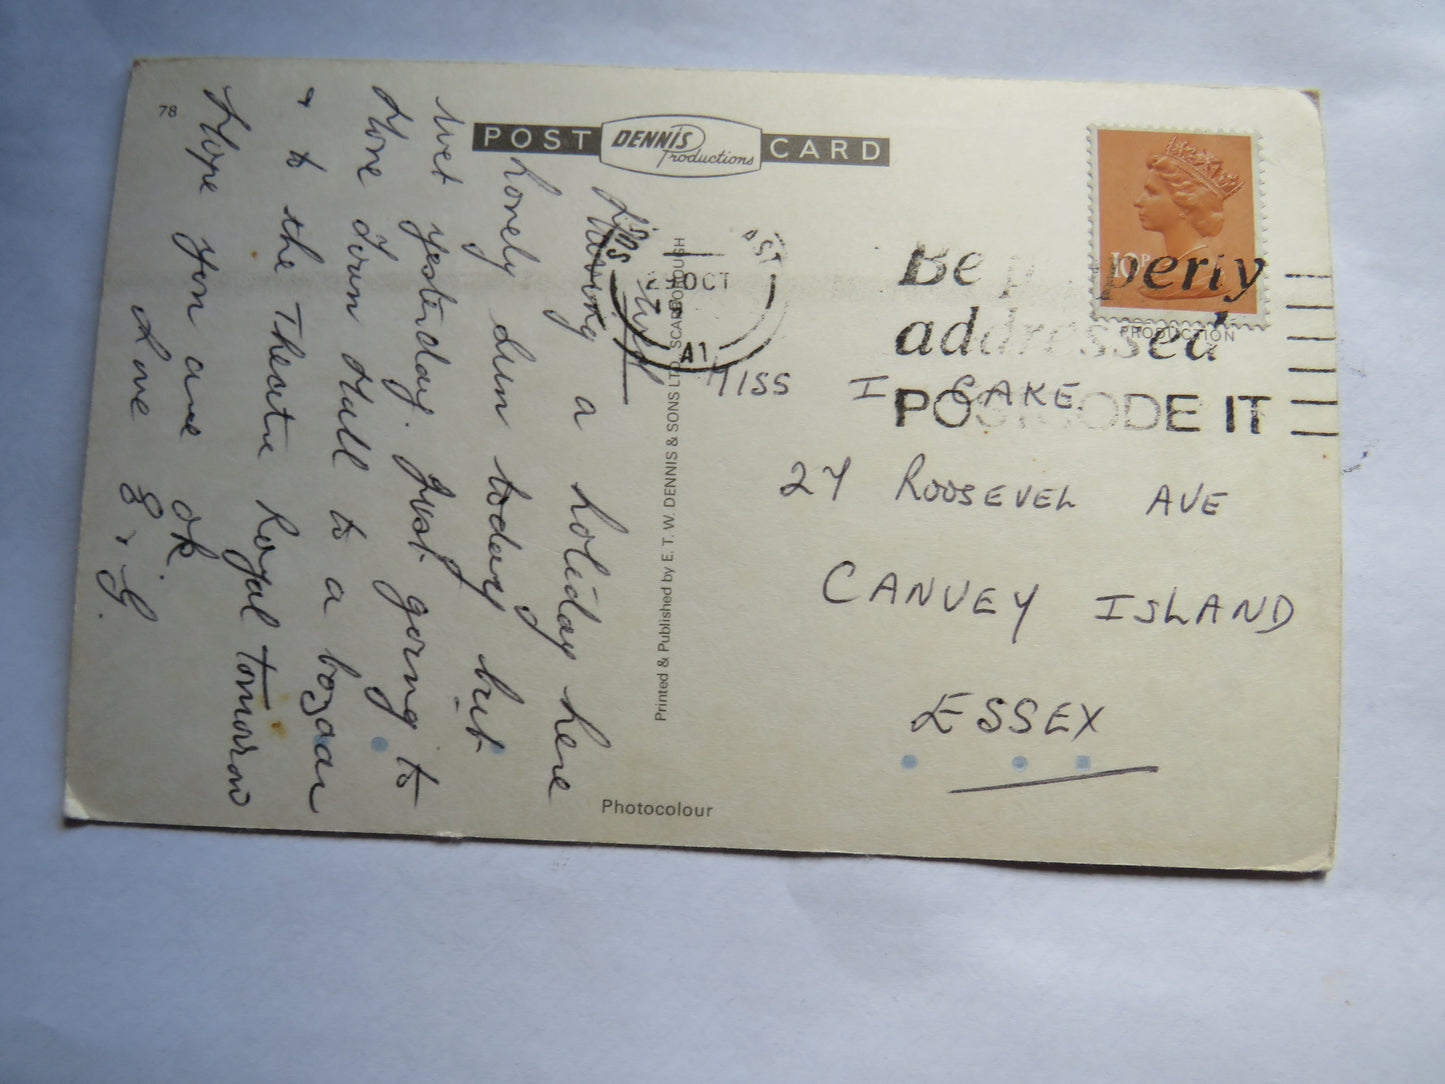 78
POST DENNIS Productions CARD
Having a holiday here
Lovely sun today but
wet yesterday. Just going to
Hove Town Hall to a bazaar
+ to the Theatre Royal tomorrow
Hope you are ok.
Love
Printed & Published by E. T. W. DENNIS & SONS LTD. SCARBOROUGH
Photocolour
OCT
A1
10P
Be properly
addressed
POSTCODE IT
PRODUCTION
MISS I CAKE
27 ROOSEVEL AVE
CANVEY ISLAND
ESSEX